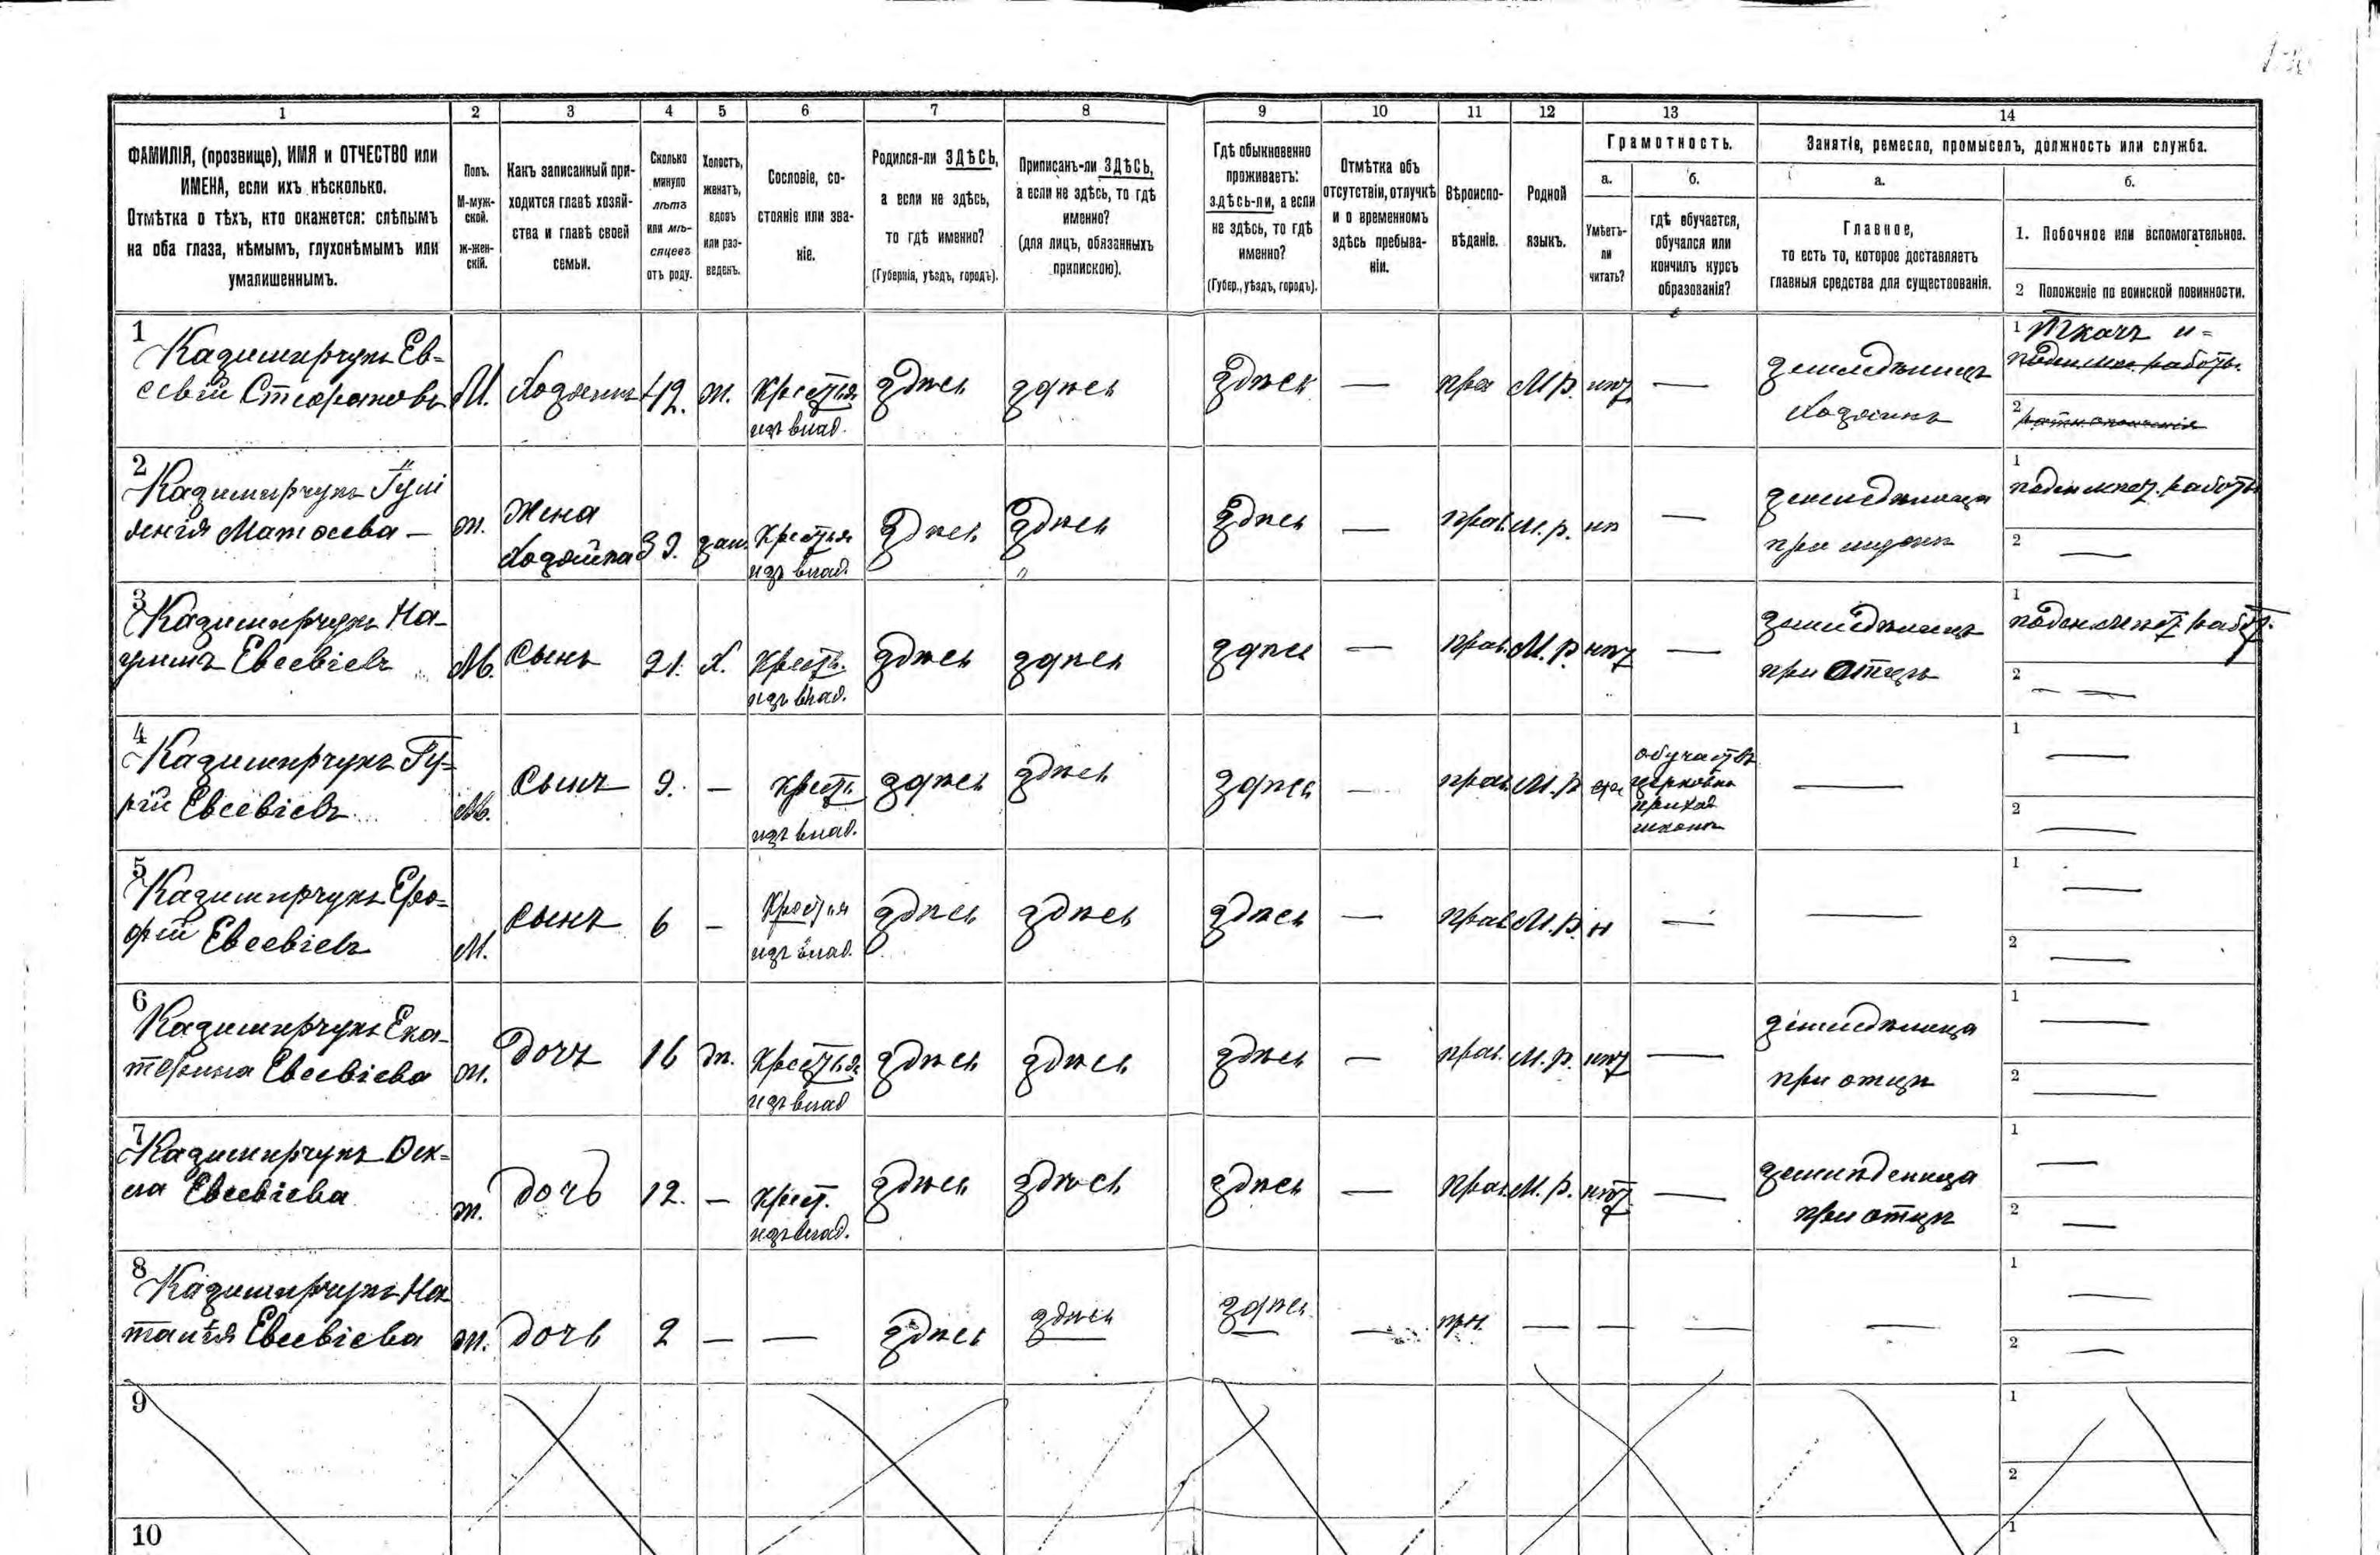 1
2
3
4
5
6
7
8
9
10
11
12
13
14
ФАМИЛІЯ, (прозвище), ИМЯ и ОТЧЕСТВО или
ИМЕНА, если ихъ нѣсколько.
Отмѣтка о тѣхъ, кто окажется: слѣпымъ
на оба глаза, нѣмымъ, глухонѣмымъ или
умалишеннымъ.
Полъ.
М-муж-
ской.
Ж-жен-
скій.
Какъ записанный при-
ходится главѣ хозяй-
ства и главѣ своей
семьи.
Сколько
минуло
лѣтъ
или мѣ-
сяцевъ
отъ роду.
Холостъ,
женатъ,
вдовъ
или раз-
веденъ.
Сословіе, со-
стояніе или зва-
ніе.
Родился-ли ЗДѢСЬ,
а если не здѣсь,
то гдѣ именно?
(Губернія, уѣздъ, городъ).
Приписанъ-ли ЗДѢСЬ,
а если не здѣсь, то гдѣ
именно?
(для лицъ, обязанныхъ
припискою).
Гдѣ обыкновенно
проживаетъ:
здѣсь-ли, а если
не здѣсь, то гдѣ
именно?
(Губер., уѣздъ, городъ).
Отмѣтка объ
отсутствіи, отлучкѣ
и о временномъ
здѣсь пребыва-
ніи.
Вѣроиспо-
вѣданіе.
Родной
языкъ.
Грамотность.
а.
Умѣетъ-
ли
читать?
б.
гдѣ обучается,
обучался или
кончилъ курсъ
образованія?
Занятіе, ремесло, промыселъ, должность или служба.
а.
Главное,
то есть то, которое доставляетъ
главныя средства для существованія.
б.
1. Побочное или вспомогательное.
2 Положеніе по воинской повинности.
1
Казимирчукъ Ев-
севій Стефановъ
М. Хозяинъ 42. ж. Крестья
изъ влад.
здѣсь здѣсь здѣсь — пра М.р. нѣт —
земледѣлецъ
Хозяинъ
1 Ткачъ и-
поденная работы
2 ратн ополченія
2
Казимирчукъ
Матѳеева —
ж. Жена
Хозяина 39. зам. Крестья
изъ влад.
здѣсь здѣсь здѣсь — прав М.р. нѣ —
земледѣлица
при мужѣ
1 работы
2 —
3
Казимирчукъ На-
умъ Евсевіевъ
М. Сынъ 21. Х. Крестъ.
изъ влад.
здѣсь здѣсь здѣсь — прав. М.р. нѣт —
земледѣлецъ
при Отцѣ
1 работ.
2 — —
4
Казимирчукъ Гу-
рій Евсевіевъ
М. Сынъ 9. — Крест
изъ влад.
здѣсь здѣсь здѣсь — прав М.р
обучается
церковно
приход
школѣ
—
1 —
2 —
5
Казимирчукъ
Евсевіевъ
М. сынъ 6 — Крестья
изъ влад.
здѣсь здѣсь здѣсь — прав М.р. н — —
1 —
2 —
6
Казимирчукъ Ека-
терина Евсевіева
ж. Дочь 16 ж. Крестья
изъ влад
здѣсь здѣсь здѣсь — прав. М.р. нѣт —
земледѣлица
при отцѣ
1 —
2 —
7
Казимирчукъ Ѳек-
ла Евсевіева
ж. Дочь 12. — Крест.
изъ влад.
здѣсь здѣсь здѣсь — прав. М.р. нѣт —
при отцѣ
1 —
2 —
8
Казимирчукъ На
талія Евсевіева
ж. Дочь 2 — — здѣсь здѣсь здѣсь — — — — —
1 —
2 —
9
1
2
10
1